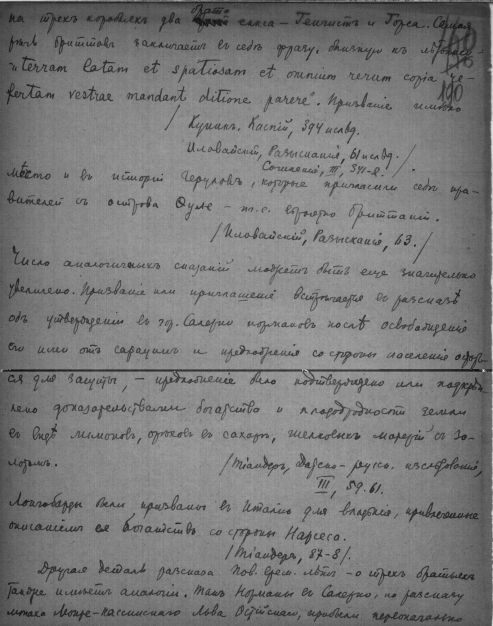 на трехъ корабляхъ два брата сакса – Генгистъ и Горса. Самая
рѣчь бриттовъ заключаетъ въ себѣ фразу, близкую къ лѣтописи –
"terram latam et spatiosam et omnium rerum copia re-
fertam vestrae mandant ditione parere". Призваніе имѣло
190
/ Куникъ. Каспій, 394 и слѣд.
Иловайскій, Разысканія, 61 и слѣд. /
Сочиненія, III, 341-2.
мѣсто и въ исторіи Геруловъ, которые пригласили себѣ пра-
вителей съ острова Фуле – т.е. вѣроятно Британіи.
/ Иловайскій, Разысканія, 63. /
Число аналогичныхъ сказаній можетъ быть еще значительно
увеличено. Призваніе или приглашеніе встрѣчается въ разсказѣ
объ утвержденіи въ гор. Салерно нормановъ послѣ освобожденія
его ими отъ сарацинъ и предложенія со стороны населенія остать-
ся для защиты, – предложеніе было подтверждено или подкрѣп-
лено доказательствами богатства и плодородности земли
въ видѣ лимоновъ, орѣховъ въ сахарѣ, шелковыхъ матерій съ зо-
лотомъ.
/ Тіандеръ, Датско-русск. изслѣдованія,
III, 59. 61.
Лонгобарды были призваны въ Италію для владѣнія, привлеченные
описаніемъ ея богатствъ со стороны Нарсеса.
/ Тіандеръ, 87-8 /.
Другая деталь разсказа Пов. врем. лѣтъ – о трехъ братьяхъ
также имѣетъ аналогіи. Такъ Норманы въ Салерно, по разсказу
монаха Монте-Кассинскаго Льва Остійскаго, прибыли первоначально